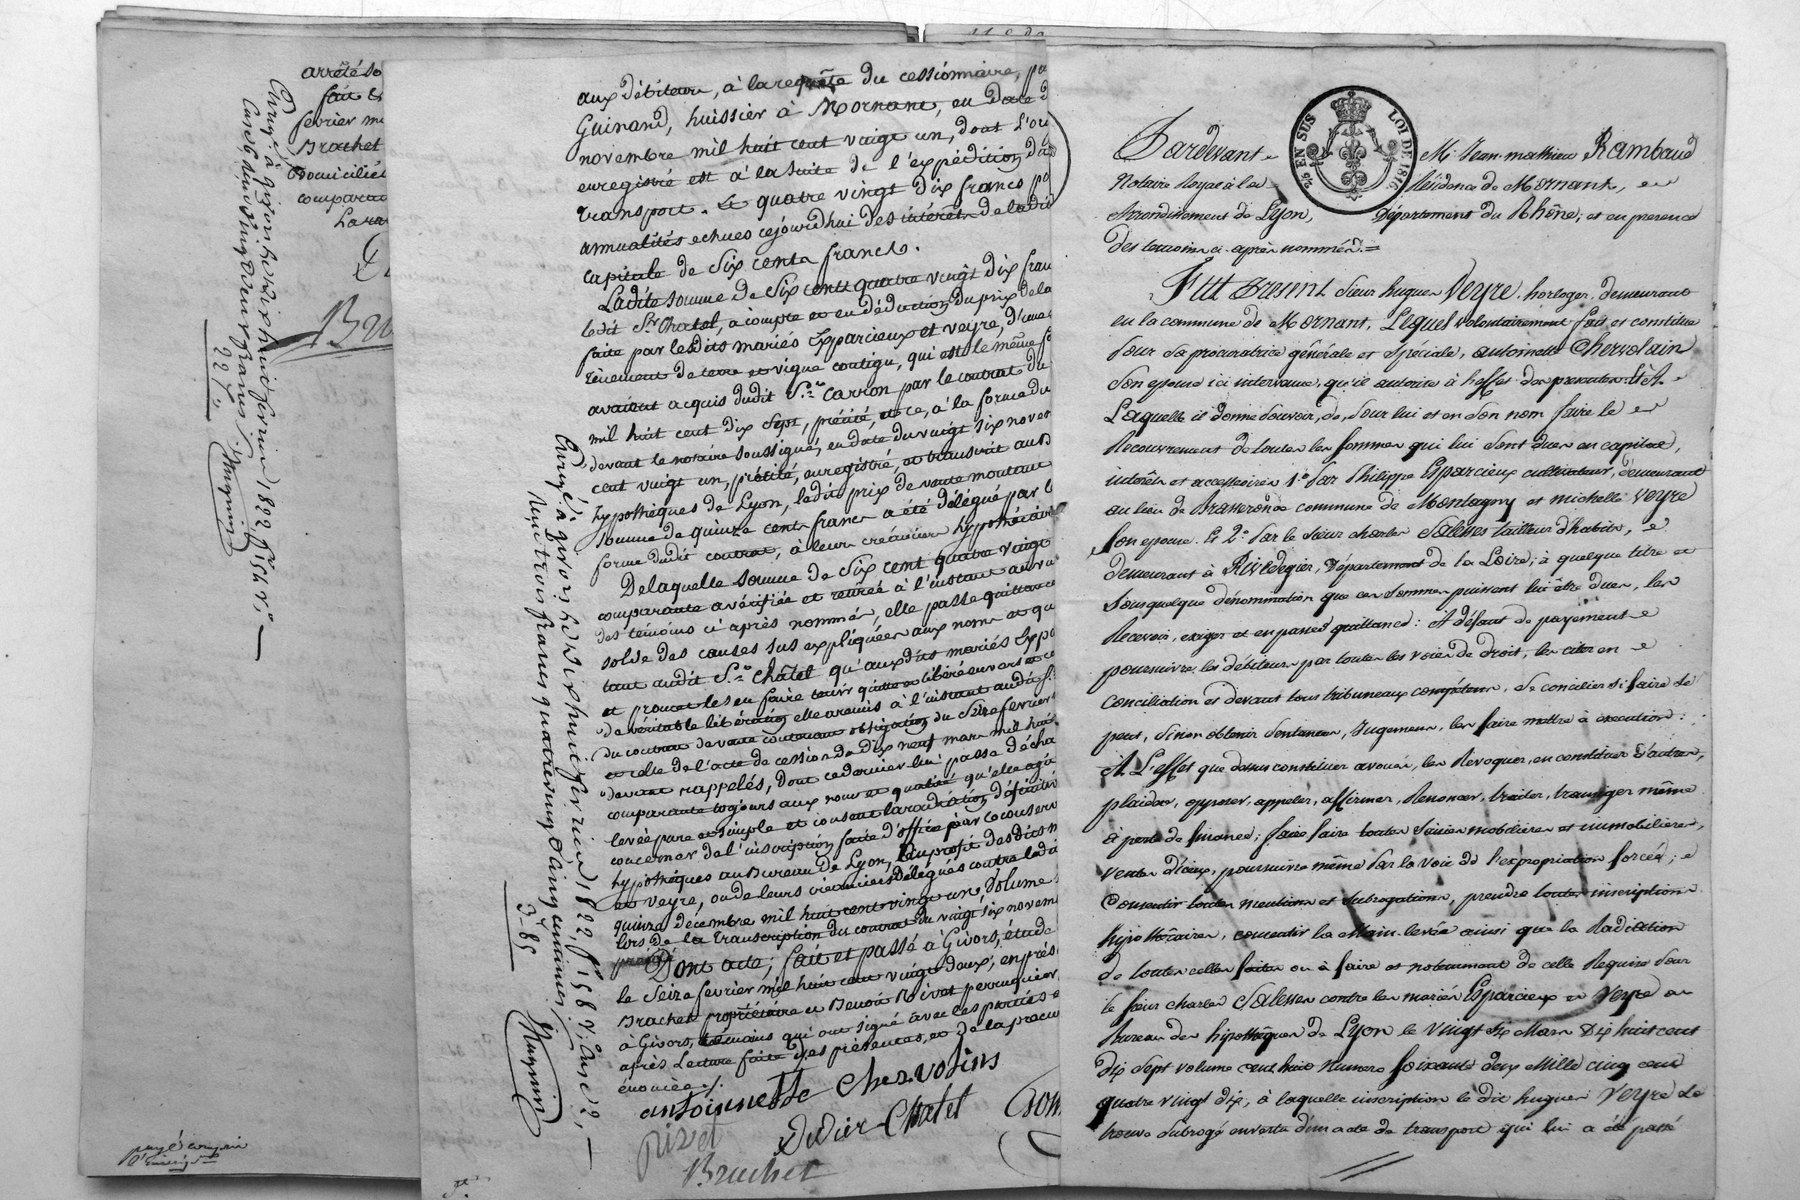 arrêté so
fait et
fevrier m
Brachet
Domicilié
compara
La ra
Bru
Enrg.é à givors le dix huit fevrier 1822 f.º 154 r.º
22 f.
aux débiteurs, à la requête du cessionnaire, pa
Guinand, huissier à Mornant, en date d
novembre mil huit cent vingt un, dont l'or
enregistré est à la suite de l'expédition du
transport. Le quatre vingt dix francs po
annualités echues cejourd'hui des intérêts de la dit
capitale de Six cents francs.
Ladite somme de Six cents quatre vingt dix fran
ledit Sr. Chatel, a compte et en déduction du prix de la
faite par lesdits mariés Esparcieux et Veyre, d'une
tènement de terre et vigne contigu, qui est le même
avaient acquis dudit Sr. Carron par le contrat du
mil huit cent dix Sept, précité, et ce, à la forme du
devant le notaire soussigné, en date du vingt six novem
cent vingt un, précité, enregistré, et transcrit au B
hypothèques de Lyon, ledit prix de vente montant
somme de quinze cents francs a été délégué par l
forme dudit contrat, à leurs créanciers hypothécaire
De laquelle somme de Six cent quatre vingt
comparante a vérifiée et retirée à l'instant au vu
des témoins ci après nommés, elle passe quittance
solde des causes sus expliquées aux noms et qu
tant audit Sr. Chatel qu'aux dits mariés Espa
et promet les en faire tenir quitte et libéré envers et co
de véritable libération elle a remis à l'instant audit S.
du contrat de vente contenant obligation du Seize fevrier
et celle de l'acte de cession de dix neuf mars mil huit
devant rappelés, dont ce dernier lui passe décha
comparante toujours aux noms et qualité qu'elle agit
levée pure et simple et consent la radiation définitive
concerner de l'inscription faite d'office par le conserv
hypothèques au Bureau de Lyon, au profit desdits m
et Veyre, ou de leurs créanciers délégués contre ledi
quinze décembre mil huit cent vingt un, Volume
lors de la transcription du contrat du vingt six novem
Dont acte; fait et passé à Givors, étude
le Seize fevrier mil huit cent vingt deux, en prés
Brachet propriétaire et Benoit Rivat perruquier
à Givors, témoins qui ont signé avec les parties
après Lecture faite des présentes, et de la procu
énoncée.
antoinette Chervolins
Didier Chatel
Brachet
Enrg.é à givors le dix huit fevrier 1822, f.º 158 r.º Case 2,
Vingt trois francs quatre vingt cinq centimes
23.85
Pardevant Me. Jean mathieu Rambaud
Notaire Royal à la Résidence de Mornant, en
Arrondissement de Lyon, Département du Rhône, et en presence
des temoins ci-après nommés.=
25 EN SUS LOI DE 1816
Fut Present Sieur hugues Veyre, horloger, demeurant
en la commune de Mornant. Lequel volontairement fait et constitue
pour sa procuratrice générale et spéciale, antoinette Chervolain
son epouse ici intervenue, qu'il autorise à l'effet des presentes: A
Laquelle il donne Pouvoir, de, pour lui et en Son nom faire le
Recouvrement de toutes les Sommes qui lui Sont dues en capital,
intérêts et accessoires 1.º Par Philippe Esparcieux cultivateur, demeurant
au lieu de commune de Montagny et michelle Veyre
Son epouse. Et 2.º Par le Sieur charles Salesses tailleur d'habits,
demeurant à Rivedegier, Département de la Loire; à quelque titre et
sous quelque dénomination que ces Sommes puissent lui être dues, les
Recevoir, exiger et en passer quittance: A défaut de payement
poursuivre les débiteurs par toutes les voies de droit, les citer en
conciliation et devant tous tribuneaux compétens, Se concilier Si faire Se
peut, Sinon obtenir Sentences, Jugemens, les faire mettre à execution:
A L'effet que dessus constituer avoués, les Revoquer, en constituer d'autres,
plaider, opposer, appeler, affirmer, Renoncer, traiter, transiger même
à perte de finance; faire faire toutes Saisies mobilieres et immobilieres,
ventes d'icelles, poursuivre même par la voie de l'expropriation forcée;
Consentir toutes mentions et Subrogations, prendre toutes inscriptions
hipothécaires, consentir la Main-levée ainsi que la Radiation
de toutes celles faites ou à faire et notamment de celle Requise Pour
le Sieur charles Salesses contre les mariés Esparcieux et Veyre au
Bureau des hipothèques de Lyon le vingt six Mars Dix huit cent
Dix Sept volume cent huit Numero Soixante deux Mille cinq cent
quatre vingt dix, à laquelle inscription le dit hugues Veyre Se
trouve Subrogé en vertu d'un acte de transport qui lui a été passé